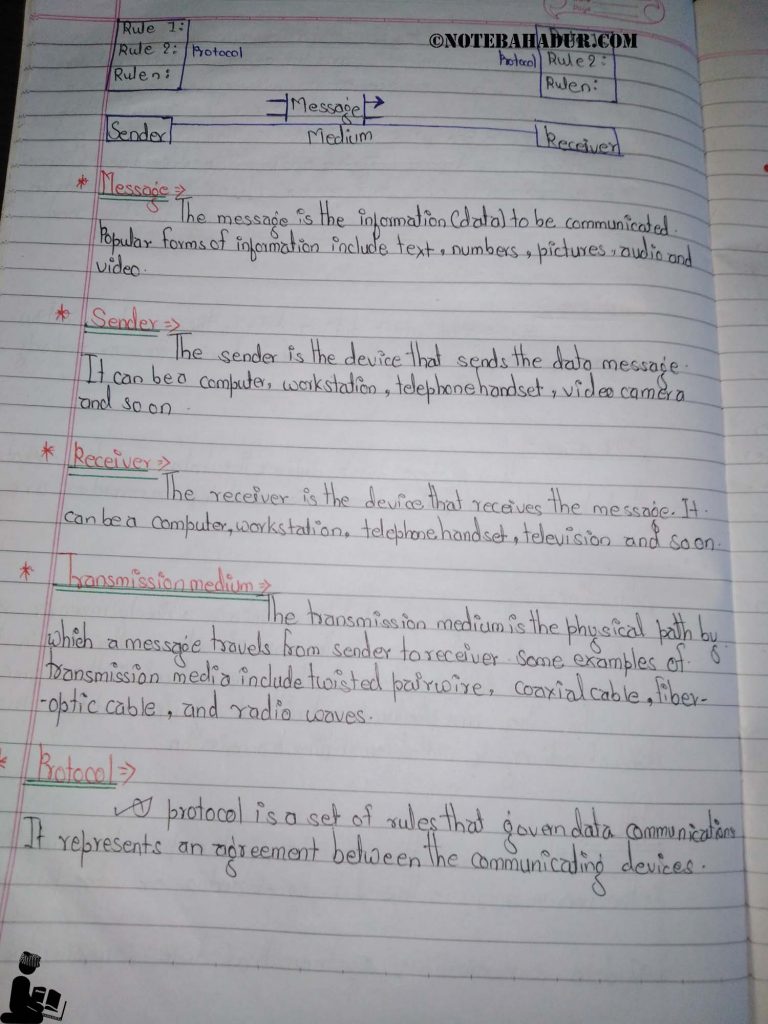 Rule 1:
©NOTEBAHADUR.COM
Rule 2: Protocol
Protocol Rule2:
Rulen:
Rulen:
Message
Sender
Medium
Receiver
* Message ⇒
The message is the information (data) to be communicated.
Popular forms of information include text, numbers, pictures, audio and
video.
* Sender ⇒
The sender is the device that sends the data message.
It can be a computer, workstation, telephone handset, video camera
and so on.
* Receiver ⇒
The receiver is the device that receives the message. It
can be a computer, workstation, telephone handset, television and so on.
* Transmission medium ⇒
The transmission medium is the physical path by
which a message travels from sender to receiver some examples of
transmission media include twisted pair wire, coaxial cable, fiber-
-optic cable, and radio waves.
* Protocol ⇒
protocol is a set of rules that govern data communications
It represents an agreement between the communicating devices.